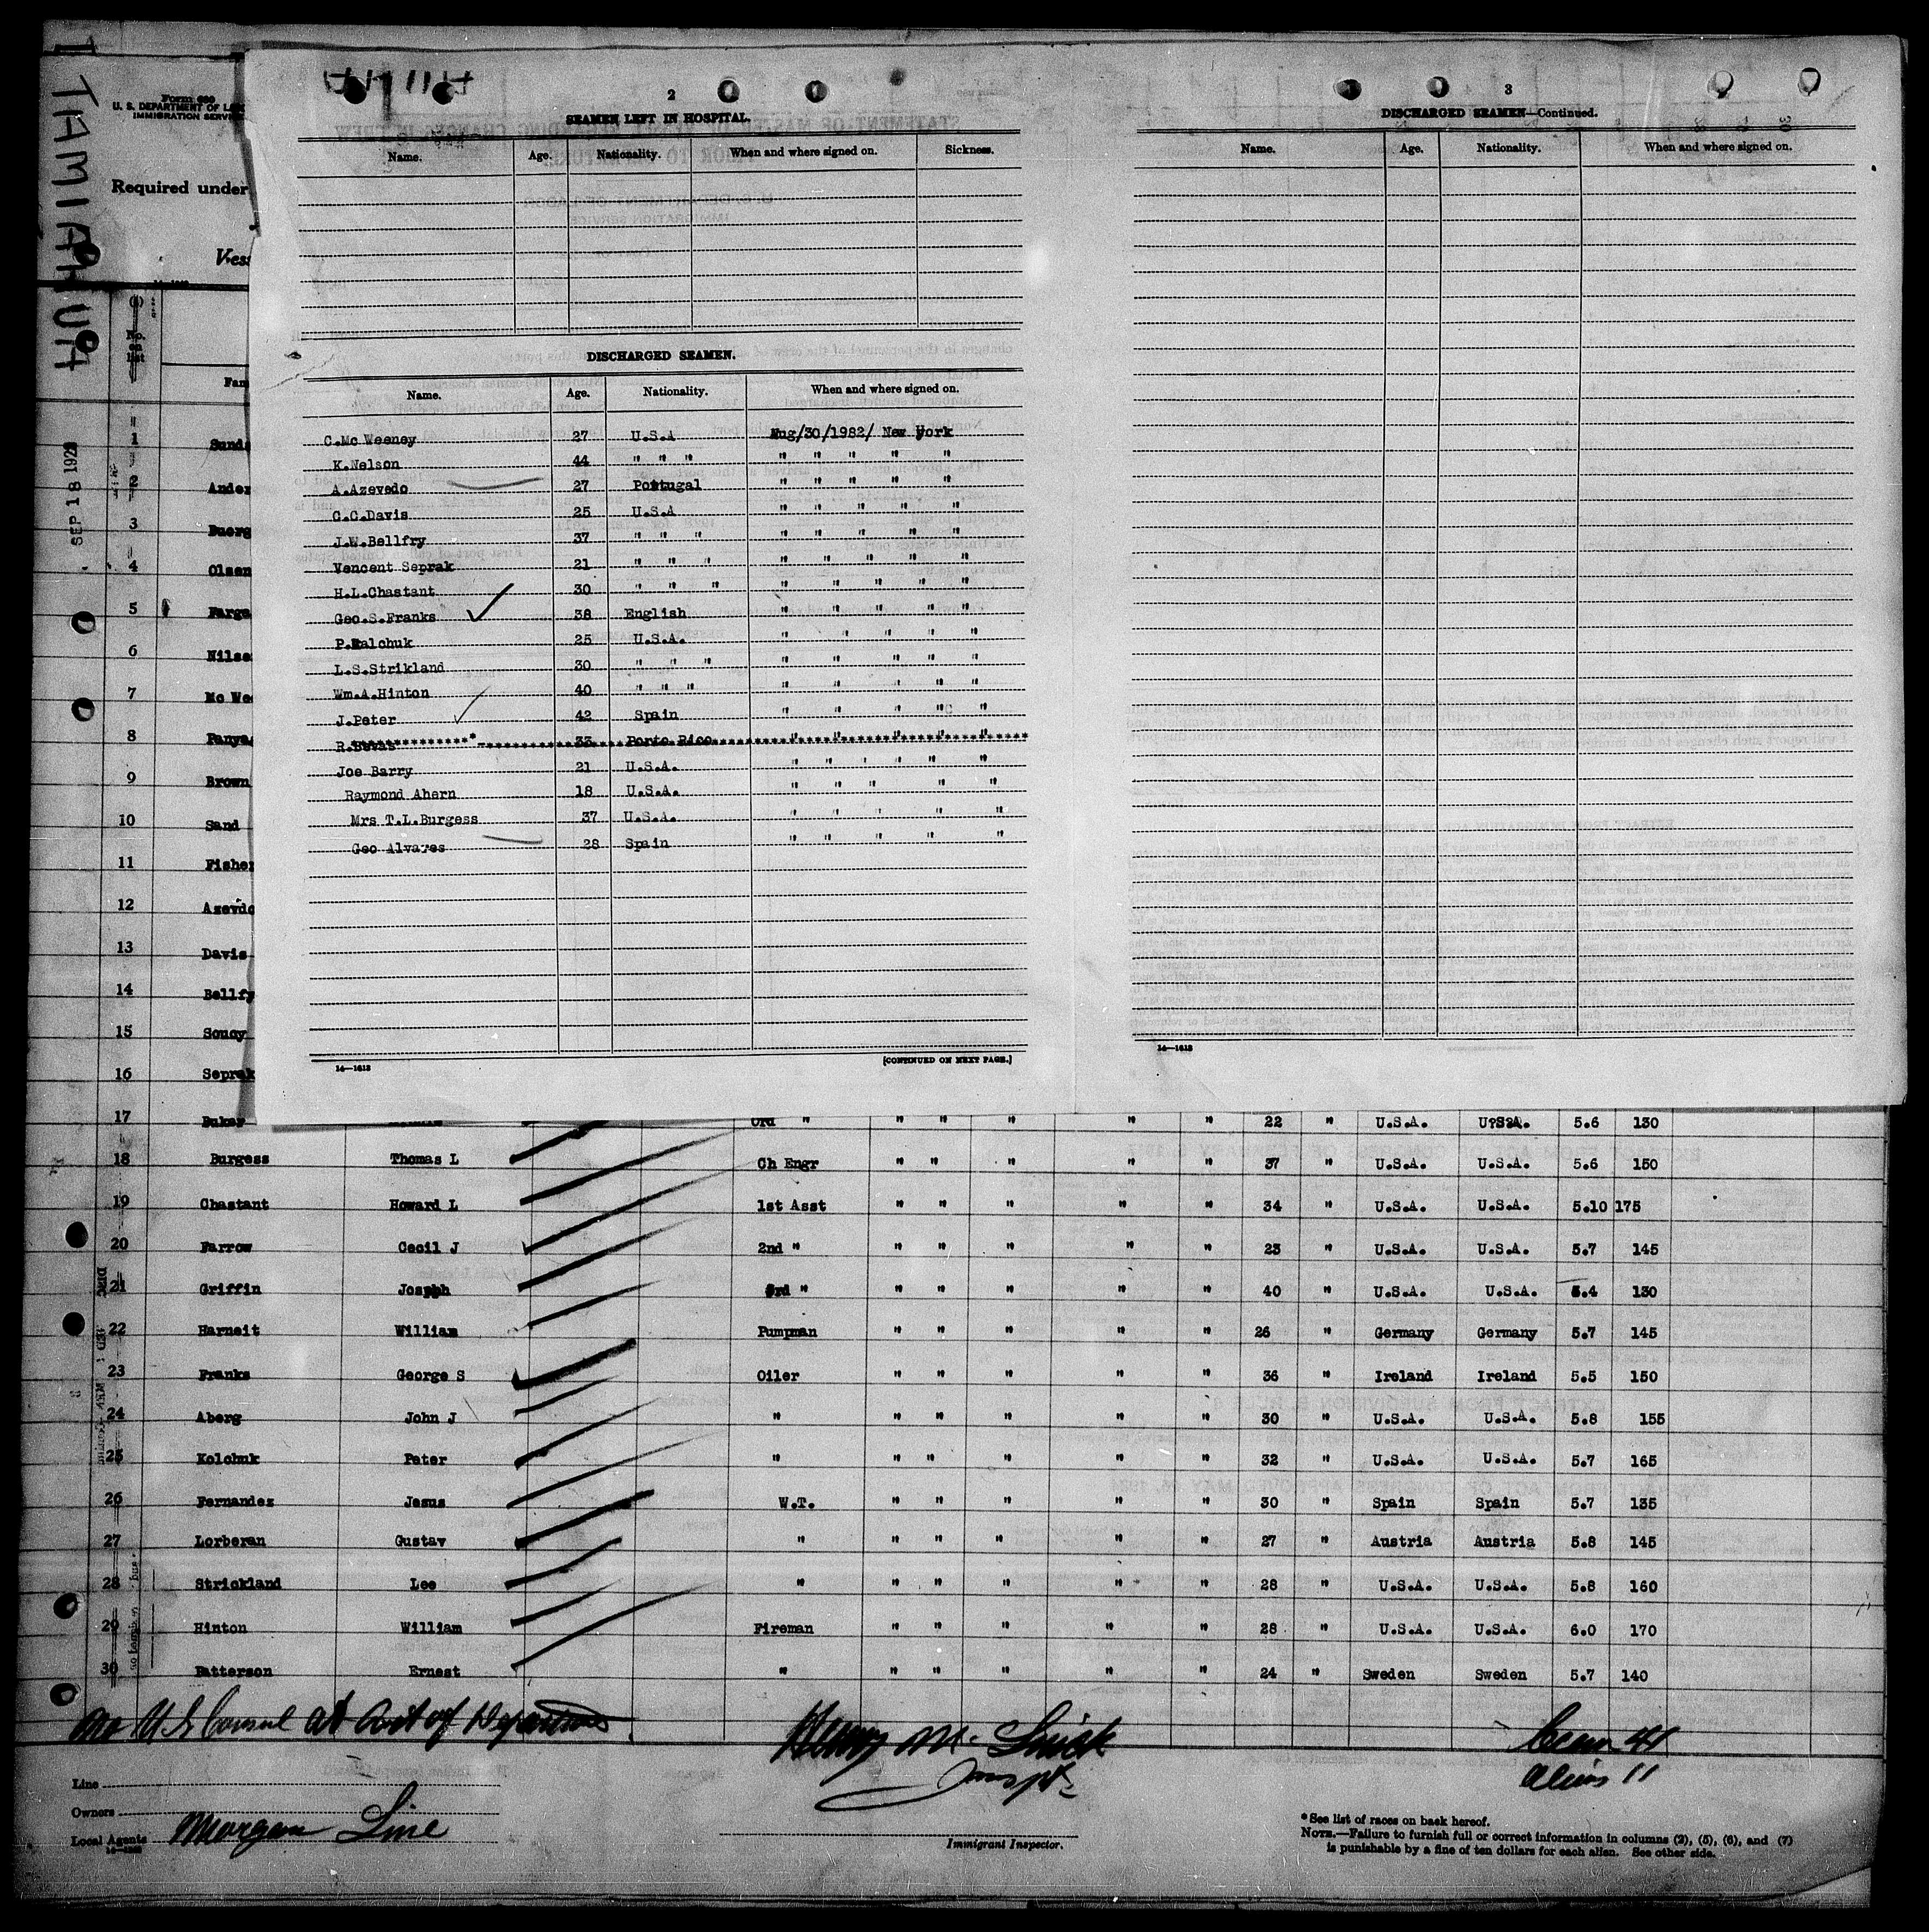 TAMIAHUA
Form 680
U. S. DEPARTMENT OF LAB
IMMIGRATION SERVICE
Required under
Vess
SEP 18 1928
No. on list
Fam
2
SEAMEN LEFT IN HOSPITAL.
Name. Age. Nationality. When and where signed on. Sickness.
DISCHARGED SEAMEN.
Name. Age. Nationality. When and where signed on.
C.Mc Weeney 27 U.S.A Aug/30/1982/ New York
K.Nelson 44 " " " " " " " "
A.Azevedo 27 Portugal " " " " "
C.C.Davis 25 U.S.A " " " " "
J.W.Bellfry 37 " " " " " " " "
Vencent Seprak 21 " " " " " " " "
H.L.Chastant 30 " " " " " " " "
Geo.S.Franks 38 English " " " " "
P.Kalchuk 25 U.S.A. " " " " "
L.S.Strikland 30 " " " " " " " "
Wm.A.Hinton 40 " " " " " " " "
J.Peter 42 Spain " " " " "
R. 33 Porto Rico " " " " "
Joe Barry 21 U.S.A. " " " " "
Raymond Ahern 18 U.S.A. " " " " "
Mrs T.L.Burgess 37 U.S.A. " " " " "
Geo Alvares 28 Spain " " " " "
14—1613
[CONTINUED ON NEXT PAGE.]
3
DISCHARGED SEAMEN—Continued.
Name. Age. Nationality. When and where signed on.
14—1613
1 Sund
2 Ander
3 Buerg
4 Olsen
5 Farga
6 Nilse
7 Mc We
8 Panya
9 Brown
10 Sand
11 Fisher
12 Azevdo
13 Davis
14 Bellfy
15 Soucy
16 Seprak
17 Ord " " " " " " 22 " U.S.A. U?S?A. 5.6 130
18 Burgess Thomas L Ch Engr " " " " " 37 " U.S.A. U.S.A. 5.6 150
19 Chastant Howard L 1st Asst " " " " " 34 " U.S.A. U.S.A. 5.10 175
20 Farrow Cecil J 2nd " " " " " " 23 " U.S.A. U.S.A. 5.7 145
21 Griffin Joseph 3rd " " " " " " 40 " U.S.A. U.S.A. 5.4 130
22 Harneit William Pumpman " " " " " 26 " Germany Germany 5.7 145
23 Franks George S Oiler " " " " " 36 " Ireland Ireland 5.5 150
24 Aberg John J " " " " " " 30 " U.S.A. U.S.A. 5.8 155
25 Kolchuk Peter " " " " " " 32 " U.S.A. U.S.A. 5.7 165
26 Fernandez Jesus W.T. " " " " " 30 " Spain Spain 5.7 135
27 Lorberan Gustav " " " " " " 27 " Austria Austria 5.8 145
28 Strickland Lee " " " " " " 28 " U.S.A. U.S.A. 5.8 160
29 Hinton William Fireman " " " " " 28 " U.S.A. U.S.A. 6.0 170
30 Patterson Ernest " " " " " " 24 " Sweden Sweden 5.7 140
no U S Consul at Port of Departure
Henry M.
Inspt.
Crew 41
Aliens 11
Line
Owners
Local Agents Morgan Line
Immigrant Inspector.
* See list of races on back hereof.
NOTE.—Failure to furnish full or correct information in columns (2), (5), (6), and (7)
is punishable by a fine of ten dollars for each alien. See other side.